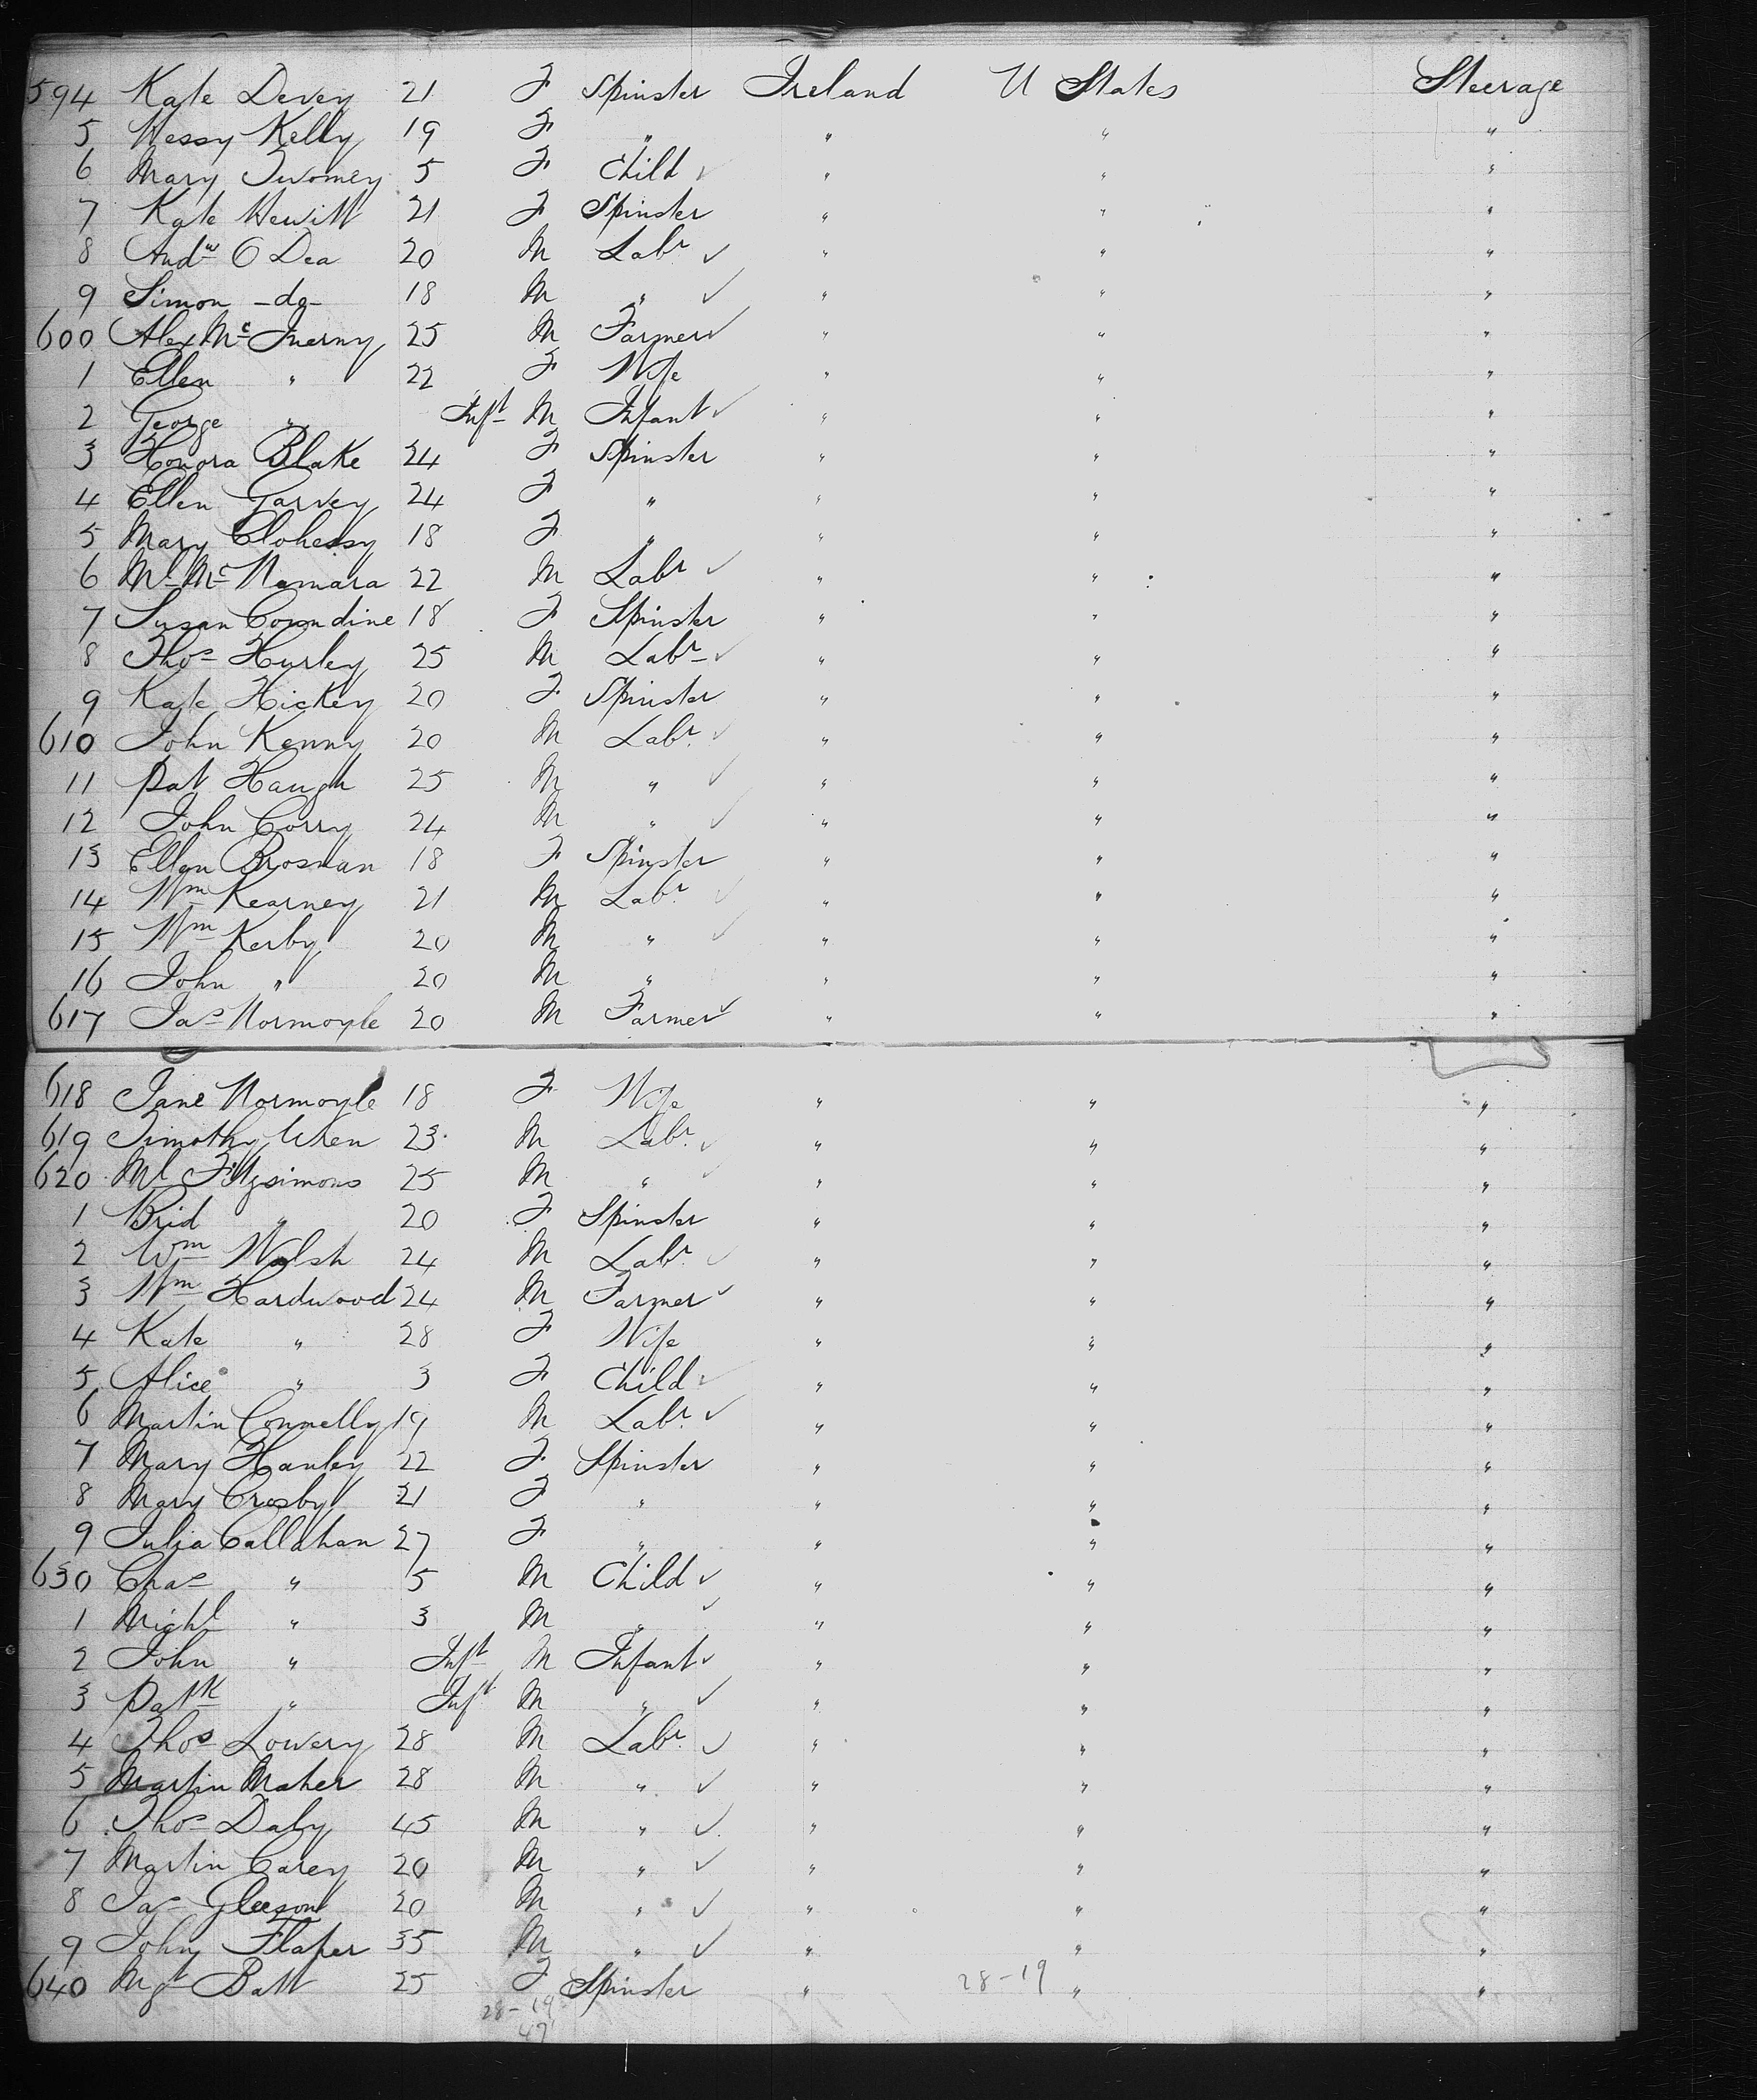 594 Kate Devey 21 F Spinster Ireland U States Steerage
5 Hessy Kelly 19 F " " " "
6 Mary Twomey 5 F Child " " "
7 Kate Hewitt 21 F Spinster " " "
8 Andw O Dea 20 M Labr " " "
9 Simon -do- 18 M " " " "
600 Alex Mc Inerny 25 M Farmer " " "
1 Ellen " 22 F Wife " " "
2 George " Inft M Infant " " "
3 Honora Blake 24 F Spinster " " "
4 Ellen Garvey 24 F " " " "
5 Mary Clohessy 18 F " " " "
6 Ml McNamara 22 M Labr " " "
7 Susan Coundine 18 F Spinster " " "
8 Thos Hurley 25 M Labr " " "
9 Kate Hickey 20 F Spinster " " "
610 John Kenny 20 M Labr " " "
11 Pat Haugh 25 M " " " "
12 John Corry 24 M " " " "
13 Ellen Brosnan 18 F Spinster " " "
14 Wm Kearney 21 M Labr " " "
15 Wm Kerby 20 M " " " "
16 John " 20 M " " " "
617 Jas Normoyle 20 M Farmer " " "
618 Jane Normoyle 18 F Wife " " "
619 Timothy Wren 23 M Labr " " "
620 Ml Fitzsimons 25 M " " " "
1 Brid " 20 F Spinster " " "
2 Wm Walsh 24 M Labr " " "
3 Wm Hardwood 24 M Farmer " " "
4 Kate " 28 F Wife " " "
5 Alice " 3 F Child " " "
6 Martin Connelly 19 M Labr " " "
7 Mary Hanley 22 F Spinster " " "
8 Mary Crosby 21 F " " " "
9 Julia Callahan 27 F " " " "
630 Chas " 5 M Child " " "
1 Michl " 3 M " " " "
2 John " Inft M Infant " " "
3 Patk " Inft M " " " "
4 Thos Lowery 28 M Labr " " "
5 Martin Maher 28 M " " " "
6 Thos Daly 45 M " " " "
7 Martin Carey 20 M " " " "
8 Jas Gleeson 20 M " " " "
9 John 35 M " " " "
640 Mgt Batt 25 F Spinster " 28-19 " "
28-19
47